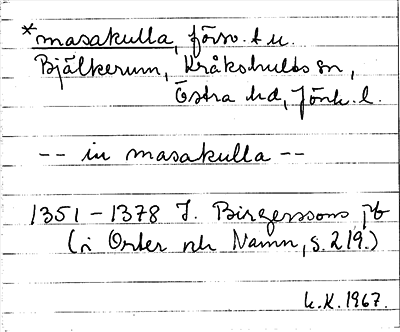 *masakulla, försv. t u.
Bjälkerum, Kråkshults sn,
Östra hd, Jönk. l.
-- in masakulla --
1351 – 1378 J. Birgerssons jb
(i Orter och Namn, s. 219.)
k.K. 1967.